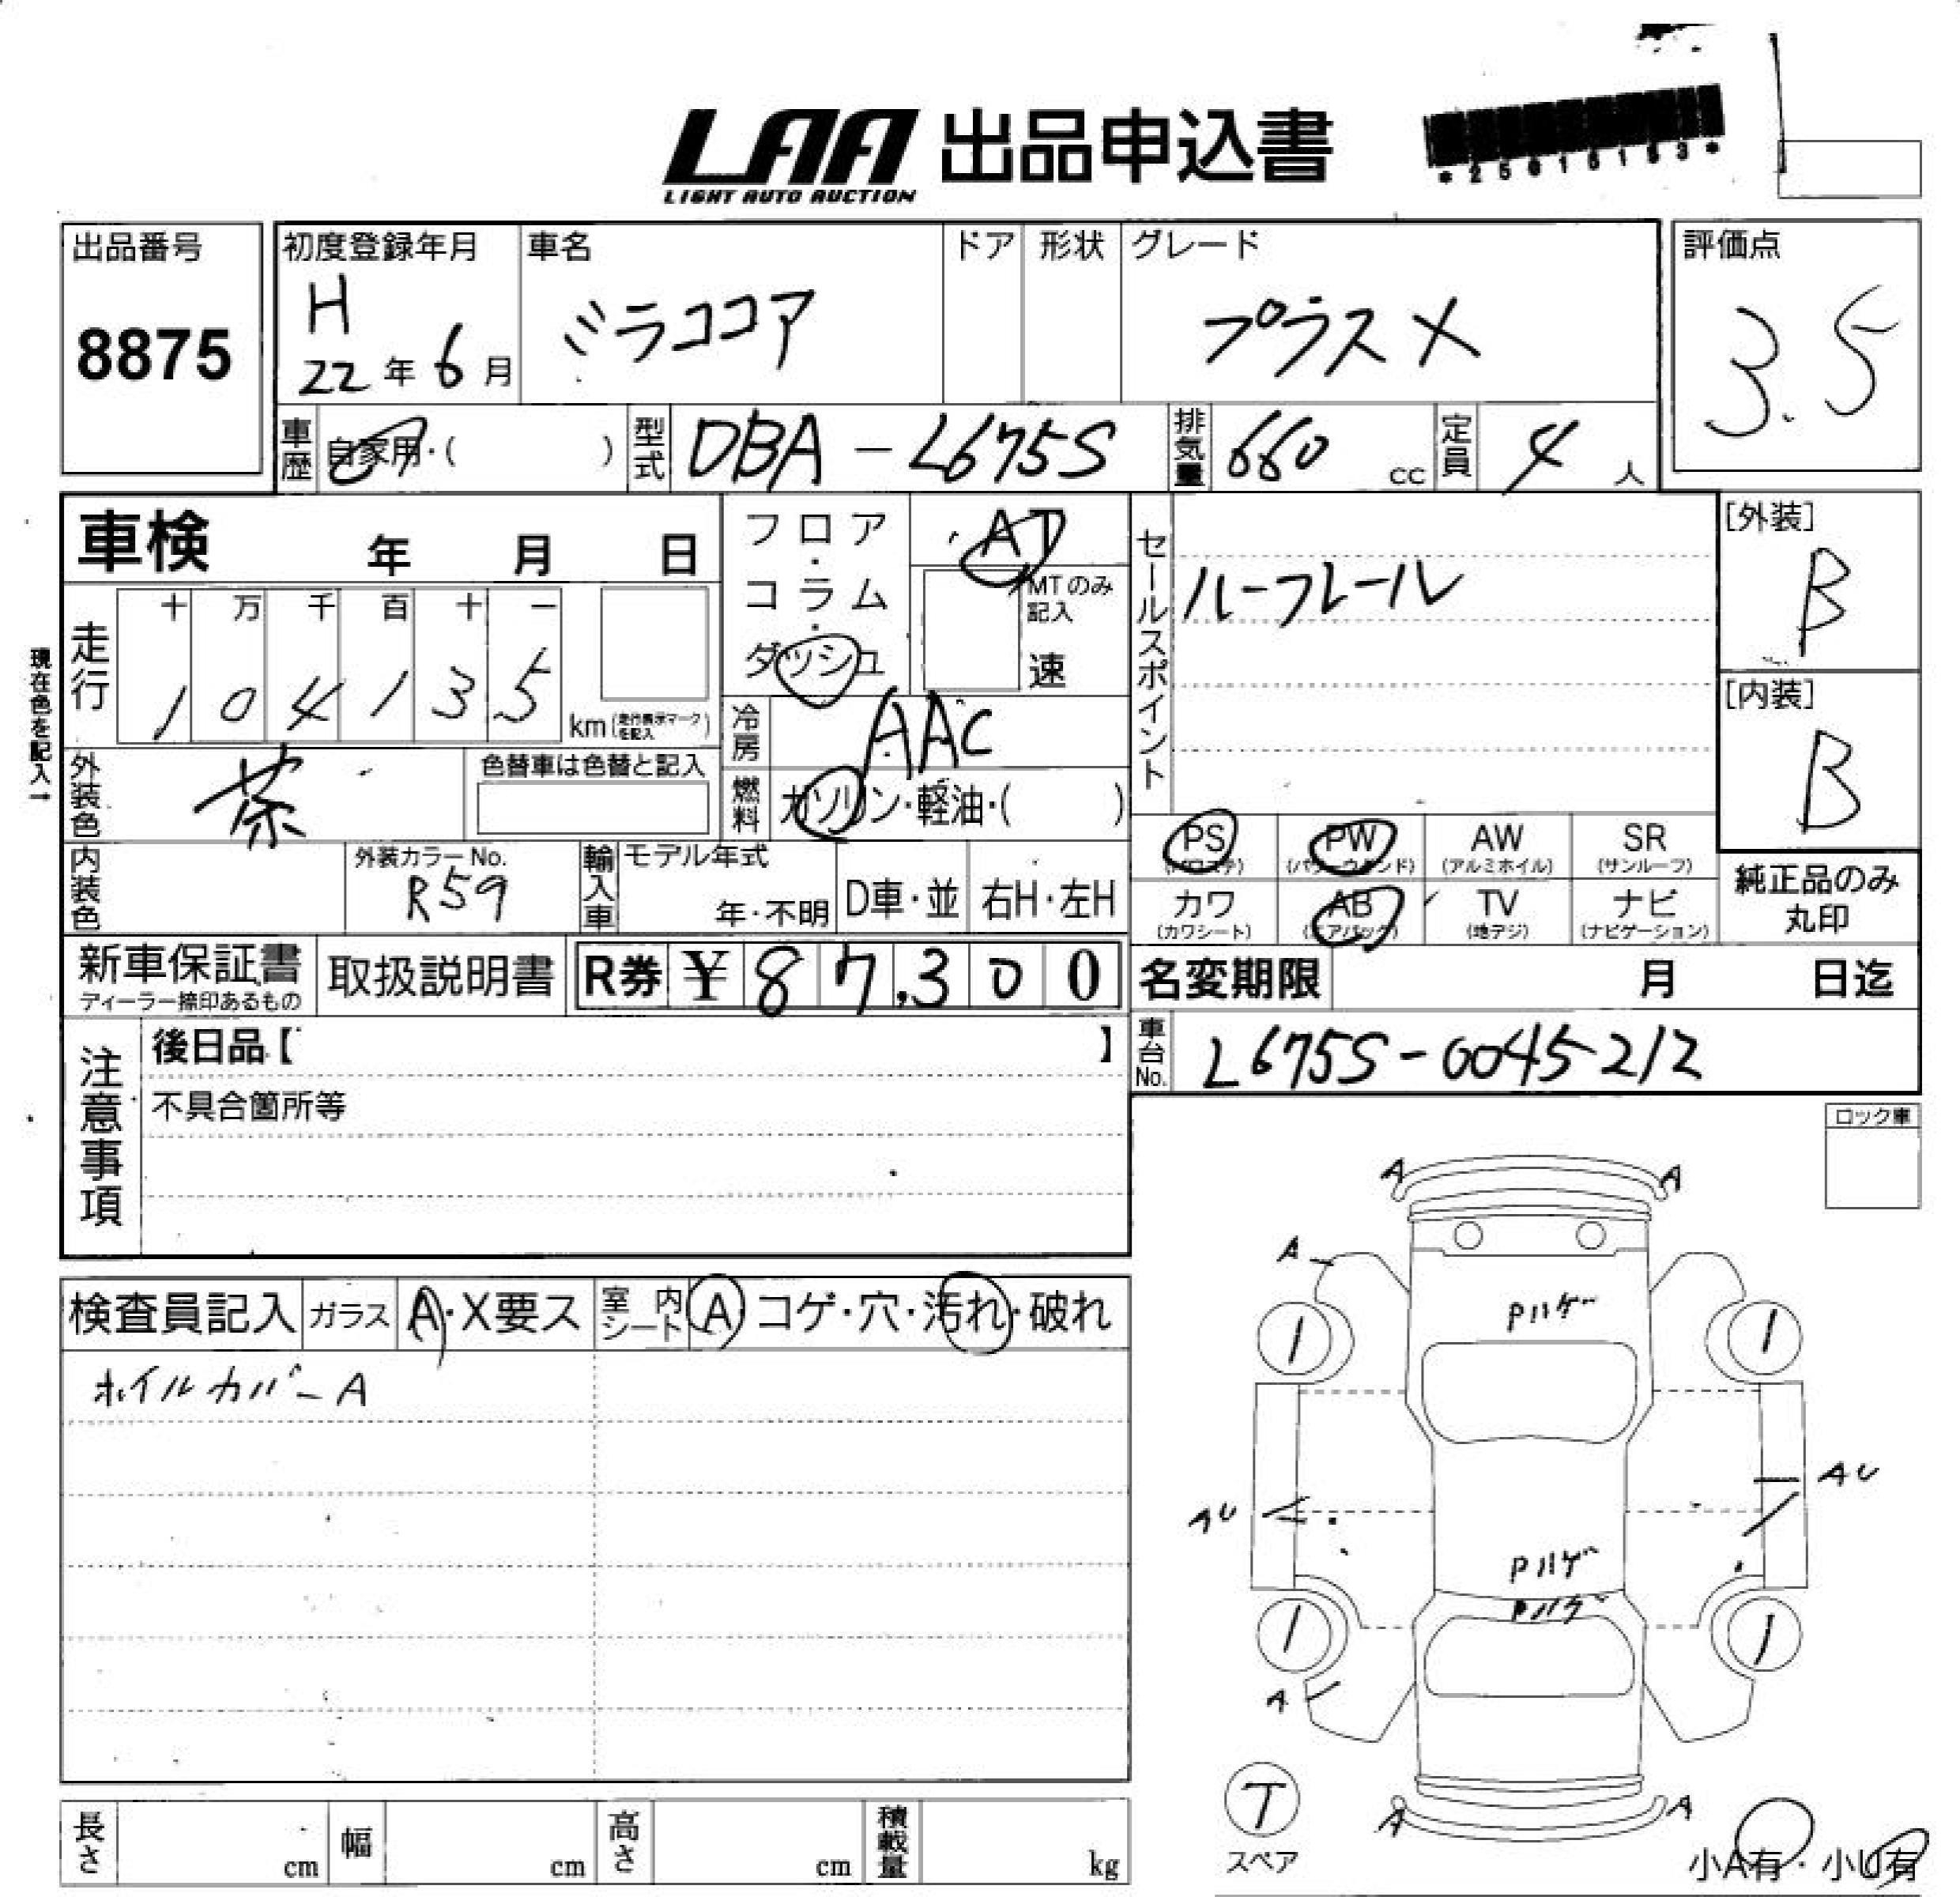 LAA 出品申込書
LIGHT AUTO AUCTION
*25610153*
出品番号
8875
初度登録年月
H
22年6月
車名
ミラココア
ドア
形状
グレード
プラスX
評価点
3.5
車歴
自家用・( )
型式
DBA-L675S
排気量
660 cc
定員
4 人
車検 年 月 日
フロア・コラム・ダッシュ
AT
MTのみ記入
速
セールスポイント
ルーフレール
[外装]
B
[内装]
B
現在色を記入→
走行
十 万 千 百 十 一
1 0 4 1 3 5
km(走行表示マークを記入)
冷房
AAC
外装色
茶
色替車は色替と記入
燃料
ガソリン・軽油・( )
PS (パワステ)
PW (パワーウインド)
AW (アルミホイル)
SR (サンルーフ)
カワ (カワシート)
AB (エアバック)
TV (地デジ)
ナビ (ナビゲーション)
純正品のみ丸印
内装色
外装カラーNo.
R59
輸入車
モデル年式
年・不明
D車・並
右H・左H
新車保証書
ディーラー捺印あるもの
取扱説明書
R券 ¥87,300
名変期限 月 日迄
車台No.
L675S-0045212
注意事項
後日品【 】
不具合箇所等
ロック車
検査員記入
ガラス
A・X要ス
室内シート
A コゲ・穴・汚れ・破れ
ホイルカバーA
A A
A
Pハゲ
1 1
AU
AU
Pハゲ
Pハゲ
1 1
A
T
スペア
A A
小A有・小U有
長さ cm
幅 cm
高さ cm
積載量 kg